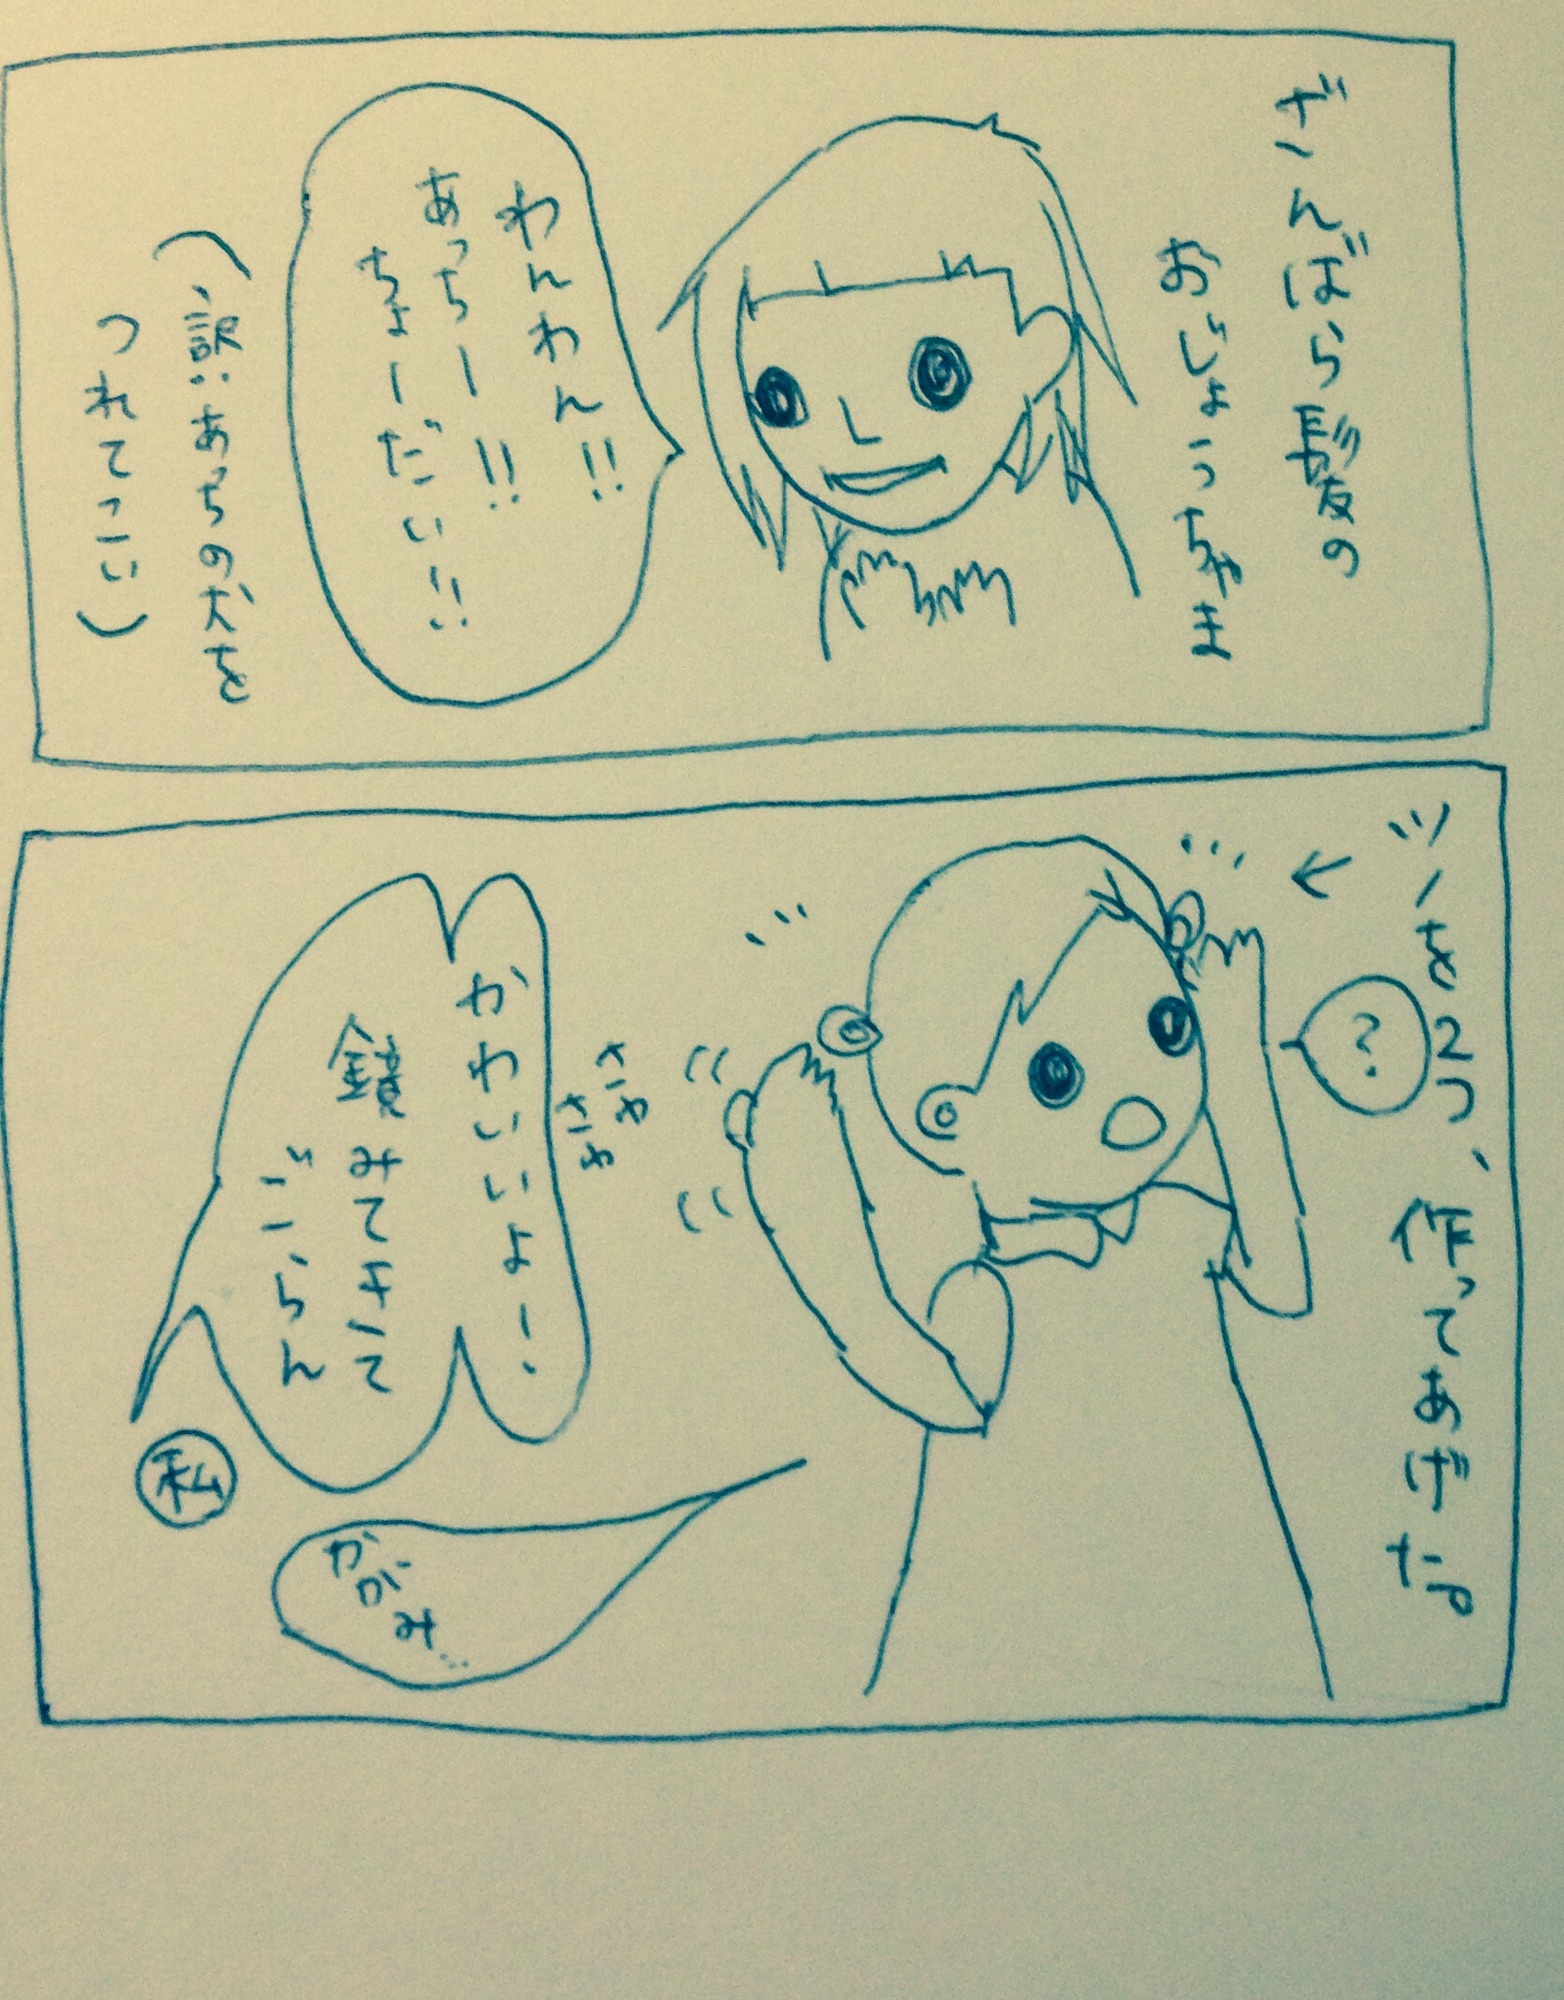 ざんばら髪の
おじょうちゃま
わんわん!!
あっちー!!
ちょーだい!!
(訳:あっちの犬を
つれてこい)
ツノを2つ、作ってあげた。
←
?
さわ
さわ
かわいいよー!
鏡みてきて
ごらん
私
かがみ…